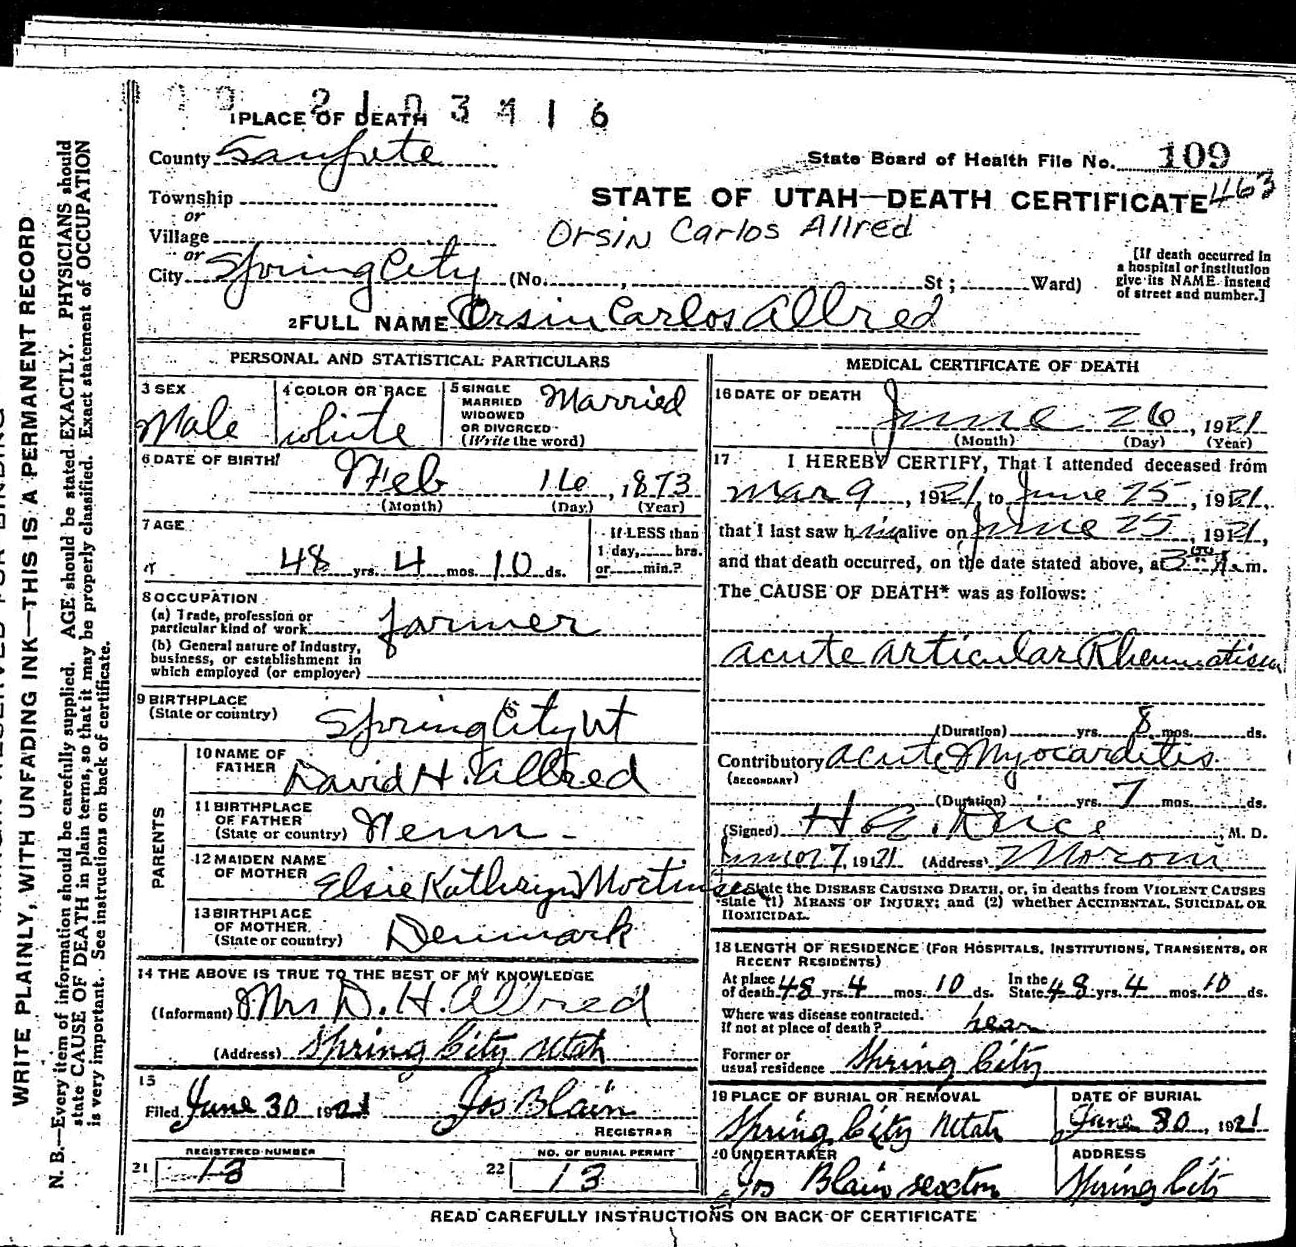 2 1 0 3 4 1 6
1 PLACE OF DEATH
County Sanpete
State Board of Health File No. 109
Township
or
STATE OF UTAH—DEATH CERTIFICATE 463
Village
or
Orsin Carlos Allred
City Spring City (No. , St; Ward)
[If death occurred in
a hospital or institution
give its NAME instead
of street and number.]
2 FULL NAME Orsin Carlos Allred
PERSONAL AND STATISTICAL PARTICULARS
3 SEX
Male
4 COLOR OR RACE
White
5 SINGLE
MARRIED
WIDOWED
OR DIVORCED
(Write the word)
Married
6 DATE OF BIRTH
Feb 16, 1873
(Month) (Day) (Year)
7 AGE
48 yrs. 4 mos. 10 ds.
If LESS than
1 day, hrs.
or min.?
8 OCCUPATION
(a) Trade, profession or
particular kind of work. farmer
(b) General nature of Industry,
business, or establishment in
which employed (or employer)
9 BIRTHPLACE
(State or country) Spring City Ut
PARENTS
10 NAME OF
FATHER David H. Allred
11 BIRTHPLACE
OF FATHER
(State or country)
12 MAIDEN NAME
OF MOTHER Elsie Kathryn Mortinsen
13 BIRTHPLACE
OF MOTHER
(State or country) Denmark
14 THE ABOVE IS TRUE TO THE BEST OF MY KNOWLEDGE
(Informant) Mrs D. H. Allred
(Address) Spring City Utah
15
Filed June 30 1921 Jos Blain
REGISTRAR
REGISTERED NUMBER
21 13
NO. OF BURIAL PERMIT
22 13
MEDICAL CERTIFICATE OF DEATH
16 DATE OF DEATH
June 26, 1921
(Month) (Day) (Year)
17 I HEREBY CERTIFY, That I attended deceased from
Mar 9, 1921, to June 25, 1921,
that I last saw him alive on June 25, 1921,
and that death occurred, on the date stated above, at 3 A.m.
The CAUSE OF DEATH* was as follows:
acute articular Rheumatism
(Duration) yrs. 8 mos. ds.
Contributory acute Myocarditis
(SECONDARY)
(Duration) yrs. 7 mos. ds.
(Signed) M. D.
27, 1921 (Address) Moroni
*State the DISEASE CAUSING DEATH, or, in deaths from VIOLENT CAUSES
state (1) MEANS OF INJURY; and (2) whether ACCIDENTAL, SUICIDAL OR
HOMICIDAL.
18 LENGTH OF RESIDENCE (FOR HOSPITALS, INSTITUTIONS, TRANSIENTS, OR
RECENT RESIDENTS)
At place In the
of death 48 yrs. 4 mos. 10 ds. State 48 yrs. 4 mos. 10 ds.
Where was disease contracted.
if not at place of death? hear
Former or
usual residence Spring City
19 PLACE OF BURIAL OR REMOVAL
Spring City Utah
DATE OF BURIAL
June 30, 1921
20 UNDERTAKER
Jos Blain sexton
ADDRESS
Spring City
READ CAREFULLY INSTRUCTIONS ON BACK OF CERTIFICATE
WRITE PLAINLY, WITH UNFADING INK—THIS IS A PERMANENT RECORD
N. B.—Every item of information should be carefully supplied. AGE should be stated EXACTLY. PHYSICIANS should
state CAUSE OF DEATH in plain terms, so that it may be properly classified. Exact statement of OCCUPATION
is very important. See instructions on back of certificate.